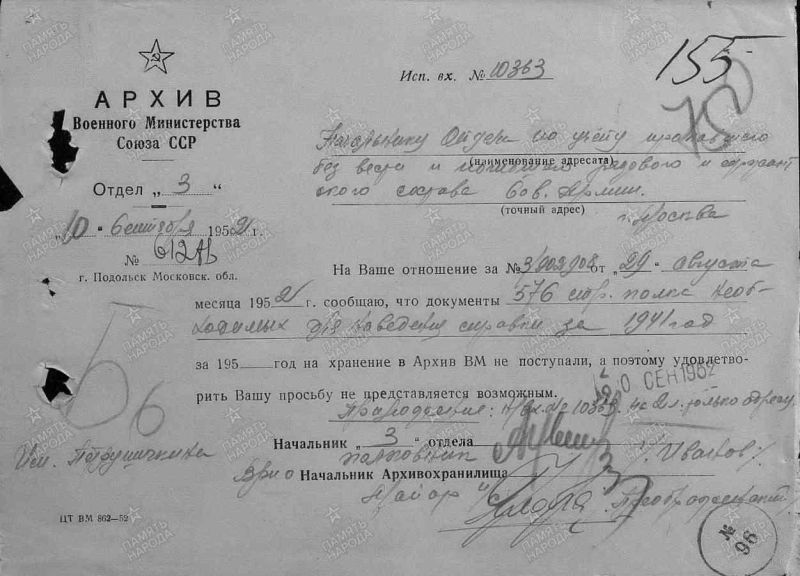 Исп. вх. № 10363
155
АРХИВ
Военного Министерства
Союза ССР
Отдел „ 3 “
„10“ сентября 1952 г.
№
г. Подольск Московск. обл.
Начальнику Отдела по учету пропавшего
без вести и погибшего рядового и сержант
(наименование адресата)
ского состава Сов. Армии.
(точный адрес)
г. Москва
На Ваше отношение за № 3/902908 от „29“ августа
месяца 1952 г. сообщаю, что документы 576 стр. полка необ-
ходимых для наведения справки за 1941 год
за 195 год на хранение в Архив ВМ не поступали, а поэтому удовлетво-
рить Вашу просьбу не представляется возможным.
0 СЕН 1952
Приложение: н/вх. № 10363 на 2 л. только адресату
Начальник „ 3 “ отдела
полковник /Иванов/
Врио Начальник Архивохранилища
майор Преображенский
Исп.
56
ЦТ ВМ 862—52
№ 96
ПАМЯТЬ НАРОДА